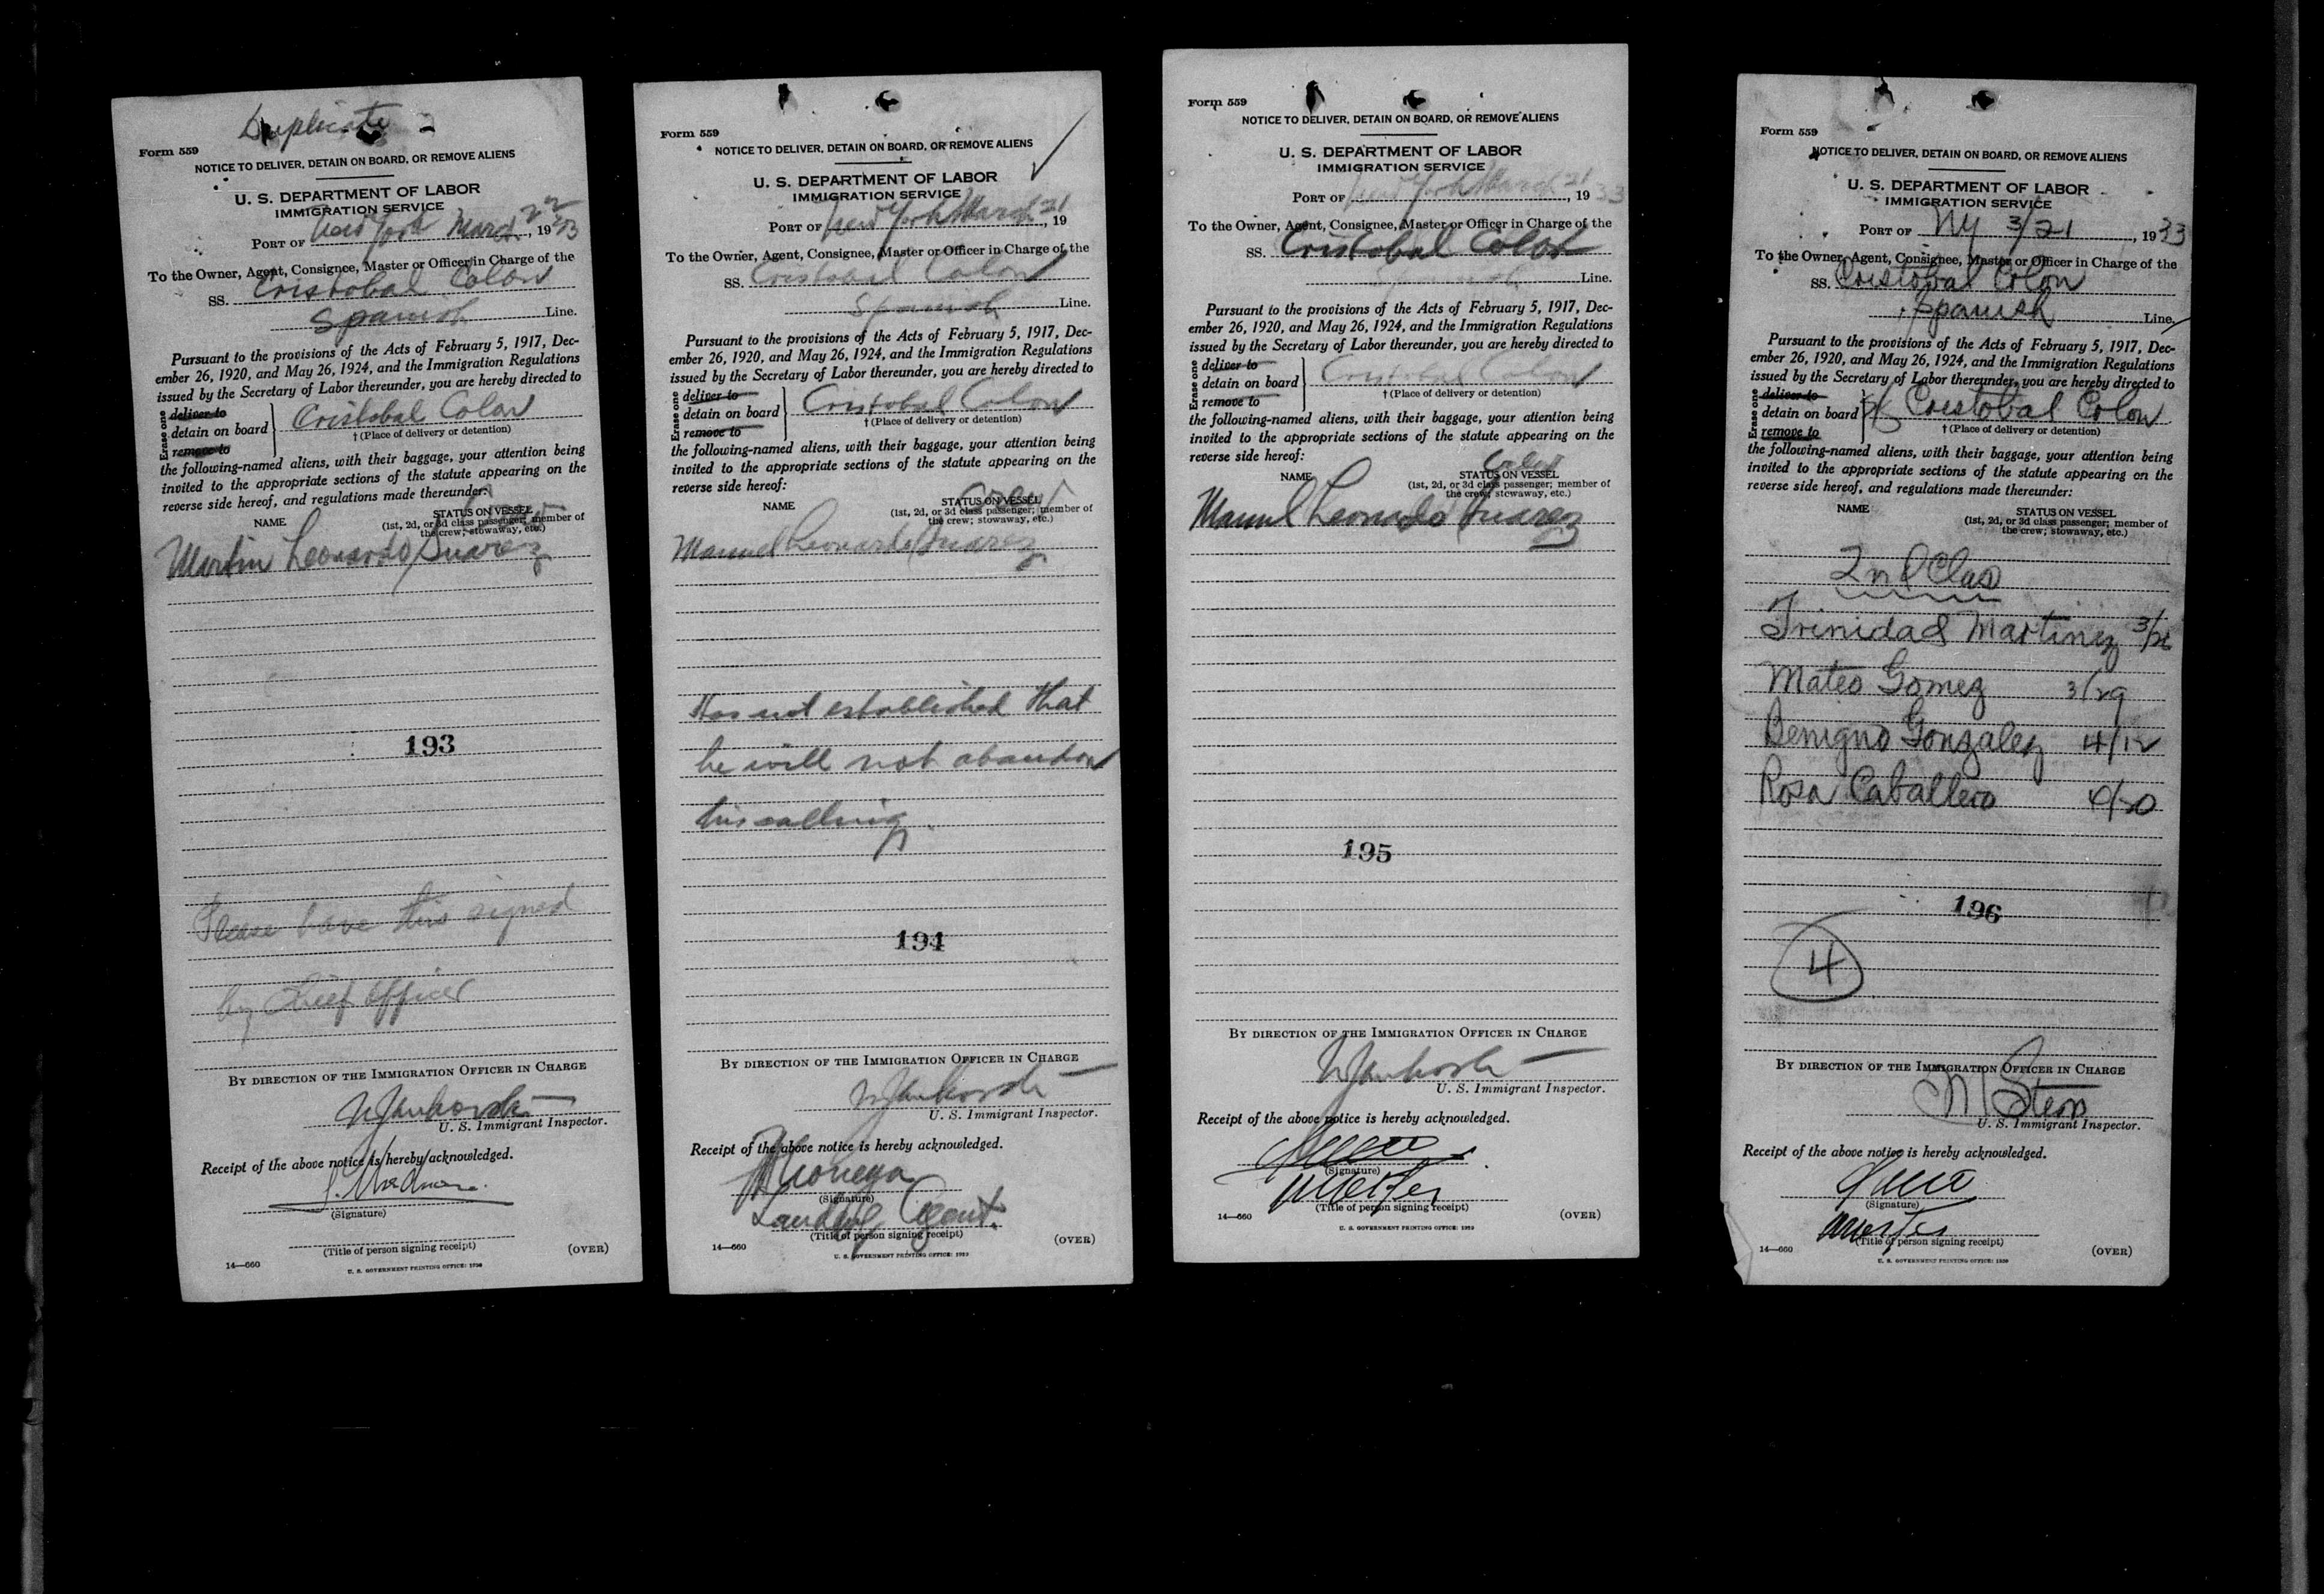 Duplicate
Form 559
NOTICE TO DELIVER, DETAIN ON BOARD, OR REMOVE ALIENS
U. S. DEPARTMENT OF LABOR
IMMIGRATION SERVICE
PORT OF New York March 22, 1933
To the Owner, Agent, Consignee, Master or Officer in Charge of the
SS. Cristobal Colon
Spanish Line.
Pursuant to the provisions of the Acts of February 5, 1917, Dec-
ember 26, 1920, and May 26, 1924, and the Immigration Regulations
issued by the Secretary of Labor thereunder, you are hereby directed to
Erase one
deliver to
detain on board Cristobal Colon
remove to
† (Place of delivery or detention)
the following-named aliens, with their baggage, your attention being
invited to the appropriate sections of the statute appearing on the
reverse side hereof, and regulations made thereunder:
NAME STATUS ON VESSEL
(1st, 2d, or 3d class passenger; member of
the crew; stowaway, etc.)
Martin Leonardo Suarez
193
Please have this signed
by chief officer
BY DIRECTION OF THE IMMIGRATION OFFICER IN CHARGE
U. S. Immigrant Inspector.
Receipt of the above notice is hereby acknowledged.
(Signature)
(Title of person signing receipt)
14—660 (OVER)
Form 559
NOTICE TO DELIVER, DETAIN ON BOARD, OR REMOVE ALIENS
U. S. DEPARTMENT OF LABOR
IMMIGRATION SERVICE
PORT OF New York March 21, 19
To the Owner, Agent, Consignee, Master or Officer in Charge of the
SS. Cristobal Colon
Spanish Line.
Pursuant to the provisions of the Acts of February 5, 1917, Dec-
ember 26, 1920, and May 26, 1924, and the Immigration Regulations
issued by the Secretary of Labor thereunder, you are hereby directed to
Erase one
deliver to
detain on board Cristobal Colon
remove to
† (Place of delivery or detention)
the following-named aliens, with their baggage, your attention being
invited to the appropriate sections of the statute appearing on the
reverse side hereof:
NAME STATUS ON VESSEL
(1st, 2d, or 3d class passenger; member of
the crew; stowaway, etc.)
Manuel Leonardo Suarez
Has not established that
he will not abandon
his calling.
194
BY DIRECTION OF THE IMMIGRATION OFFICER IN CHARGE
U. S. Immigrant Inspector.
Receipt of the above notice is hereby acknowledged.
(Signature)
Landing Agent.
(Title of person signing receipt)
14—660 (OVER)
Form 559
NOTICE TO DELIVER, DETAIN ON BOARD, OR REMOVE ALIENS
U. S. DEPARTMENT OF LABOR
IMMIGRATION SERVICE
PORT OF New York March 21, 1933
To the Owner, Agent, Consignee, Master or Officer in Charge of the
SS. Cristobal Colon
Spanish Line.
Pursuant to the provisions of the Acts of February 5, 1917, Dec-
ember 26, 1920, and May 26, 1924, and the Immigration Regulations
issued by the Secretary of Labor thereunder, you are hereby directed to
Erase one
deliver to
detain on board Cristobal Colon
remove to
† (Place of delivery or detention)
the following-named aliens, with their baggage, your attention being
invited to the appropriate sections of the statute appearing on the
reverse side hereof:
NAME STATUS ON VESSEL
(1st, 2d, or 3d class passenger; member of
the crew; stowaway, etc.)
Manuel Leonardo Suarez
195
BY DIRECTION OF THE IMMIGRATION OFFICER IN CHARGE
U. S. Immigrant Inspector.
Receipt of the above notice is hereby acknowledged.
(Signature)
(Title of person signing receipt)
14—660 (OVER)
Form 559
NOTICE TO DELIVER, DETAIN ON BOARD, OR REMOVE ALIENS
U. S. DEPARTMENT OF LABOR
IMMIGRATION SERVICE
PORT OF NY 3/21, 1933
To the Owner, Agent, Consignee, Master or Officer in Charge of the
SS. Cristobal Colon
Spanish Line.
Pursuant to the provisions of the Acts of February 5, 1917, Dec-
ember 26, 1920, and May 26, 1924, and the Immigration Regulations
issued by the Secretary of Labor thereunder, you are hereby directed to
Erase one
deliver to
detain on board Cristobal Colon
remove to
† (Place of delivery or detention)
the following-named aliens, with their baggage, your attention being
invited to the appropriate sections of the statute appearing on the
reverse side hereof, and regulations made thereunder:
NAME STATUS ON VESSEL
(1st, 2d, or 3d class passenger; member of
the crew; stowaway, etc.)
2nd Class
Trinidad Martinez
Mateo Gomez 3/29
Benigno Gonzalez 4/12
Rosa Caballero 4/20
196
4
BY DIRECTION OF THE IMMIGRATION OFFICER IN CHARGE
M Stern
U. S. Immigrant Inspector.
Receipt of the above notice is hereby acknowledged.
(Signature)
(Title of person signing receipt)
14—660 (OVER)